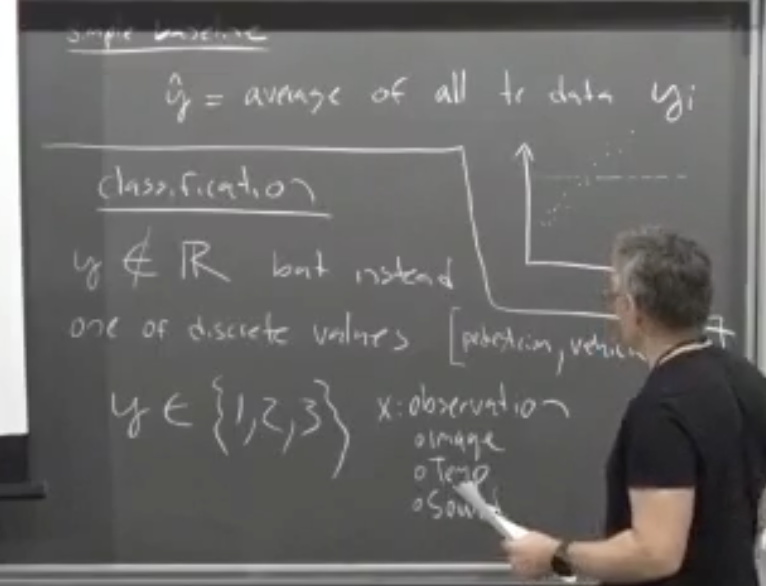 simple baseline
ŷ = average of all tr data yi
classification
y ∉ ℝ but instead
one of discrete values [pedestrian, vehic
y ∈ {1,2,3}
x: observation
o image
o Temp
o Sound